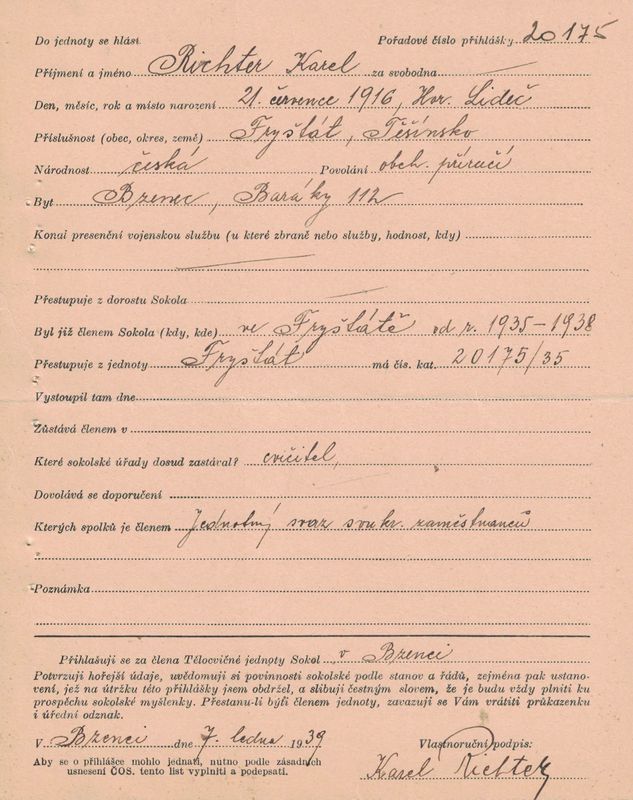 Do jednoty se hlásí Pořadové číslo přihlášky 20175
Příjmení a jméno Richter Karel za svobodna
Den, měsíc, rok a místo narození 21. července 1916, Hor. Lideč
Příslušnost (obec, okres, země) Fryštát, Těšínsko
Národnost česká Povolání obch. příručí
Byt Bzenec, Baráky 112
Konal presenční vojenskou službu (u které zbraně nebo služby, hodnost, kdy)
Přestupuje z dorostu Sokola
Byl již členem Sokola (kdy, kde) ve Fryštátě od r. 1935-1938
Přestupuje z jednoty Fryštát má čís. kat. 20175/35
Vystoupil tam dne
Zůstává členem v
Které sokolské úřady dosud zastával? cvičitel,
Dovolává se doporučení
Kterých spolků je členem Jednotný svaz soukr. zaměstnanců
Poznámka
Přihlašuji se za člena Tělocvičné jednoty Sokol v Bzenci
Potvrzuji hořejší údaje, uvědomuji si povinnosti sokolské podle stanov a řádů, zejména pak ustano-
vení, jež na útržku této přihlášky jsem obdržel, a slibuji čestným slovem, že je budu vždy plniti ku
prospěchu sokolské myšlenky. Přestanu-li býti členem jednoty, zavazuji se Vám vrátiti průkazenku
i úřední odznak.
V Bzenci dne 7. ledna 1939 Vlastnoruční podpis:
Aby se o přihlášce mohlo jednati, nutno podle zásadních
usnesení ČOS. tento list vyplniti a podepsati. Karel Richter